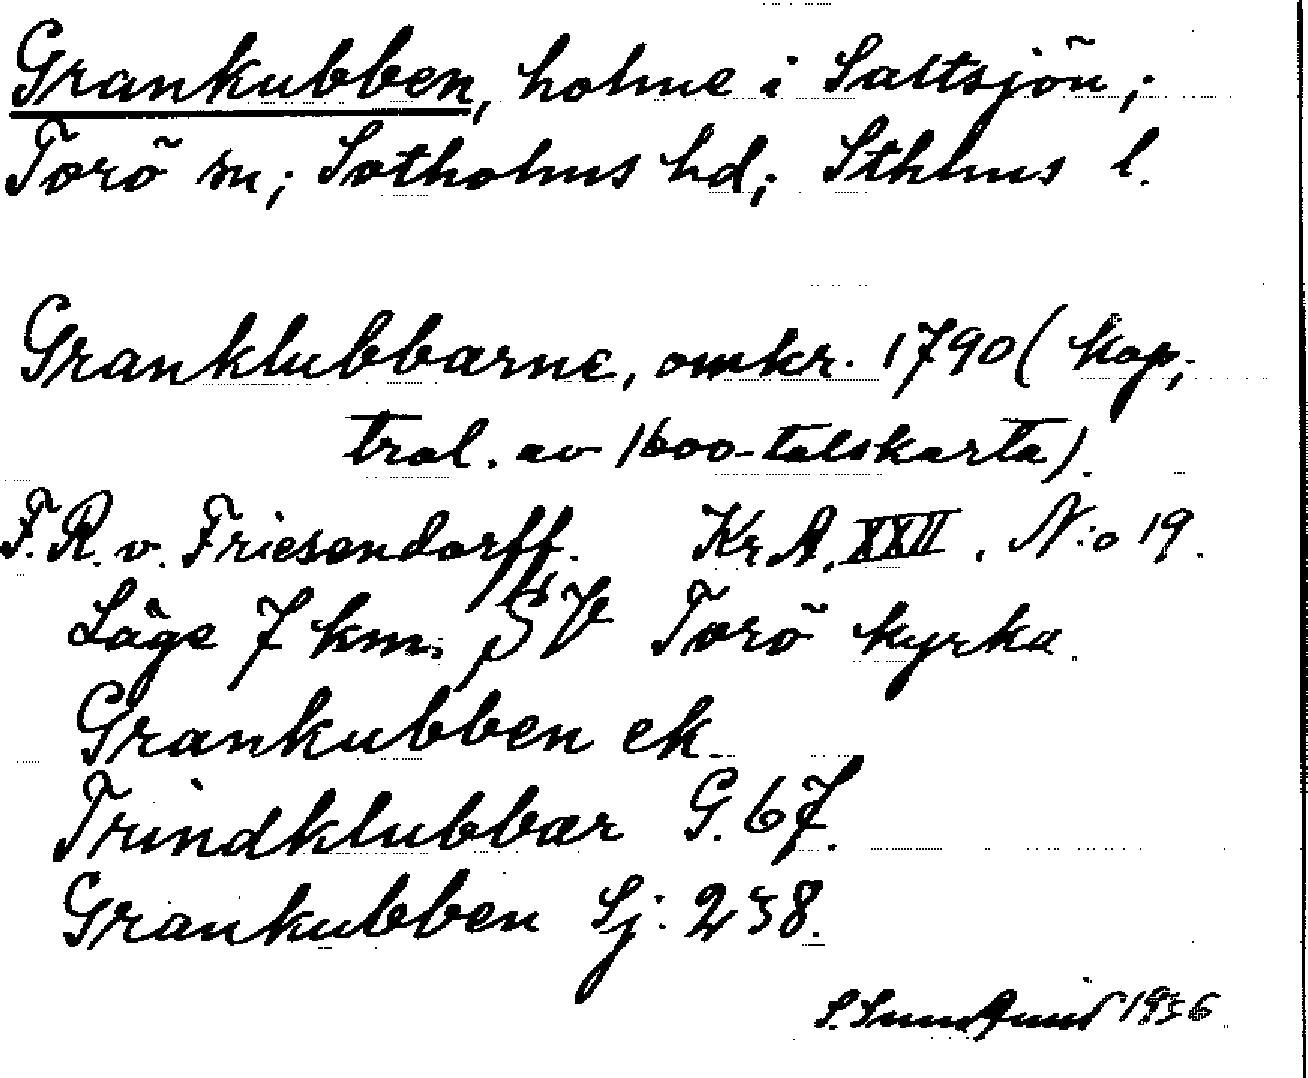 Grankubben, holme i Saltsjön;
Torö sn; Sotholms hd; Sthlms l.
Granklubbarne, omkr. 1790 (kop;
tral. av 1600-talskarta).
F. R. v. Friesendorff. Kr A. XXII. N:o 19.
Läge 7 km. SV Torö kyrka.
Grankubben ek
Trindklubbar G. 67.
Grankubben Sj: 238.
S. Sundquist 1936